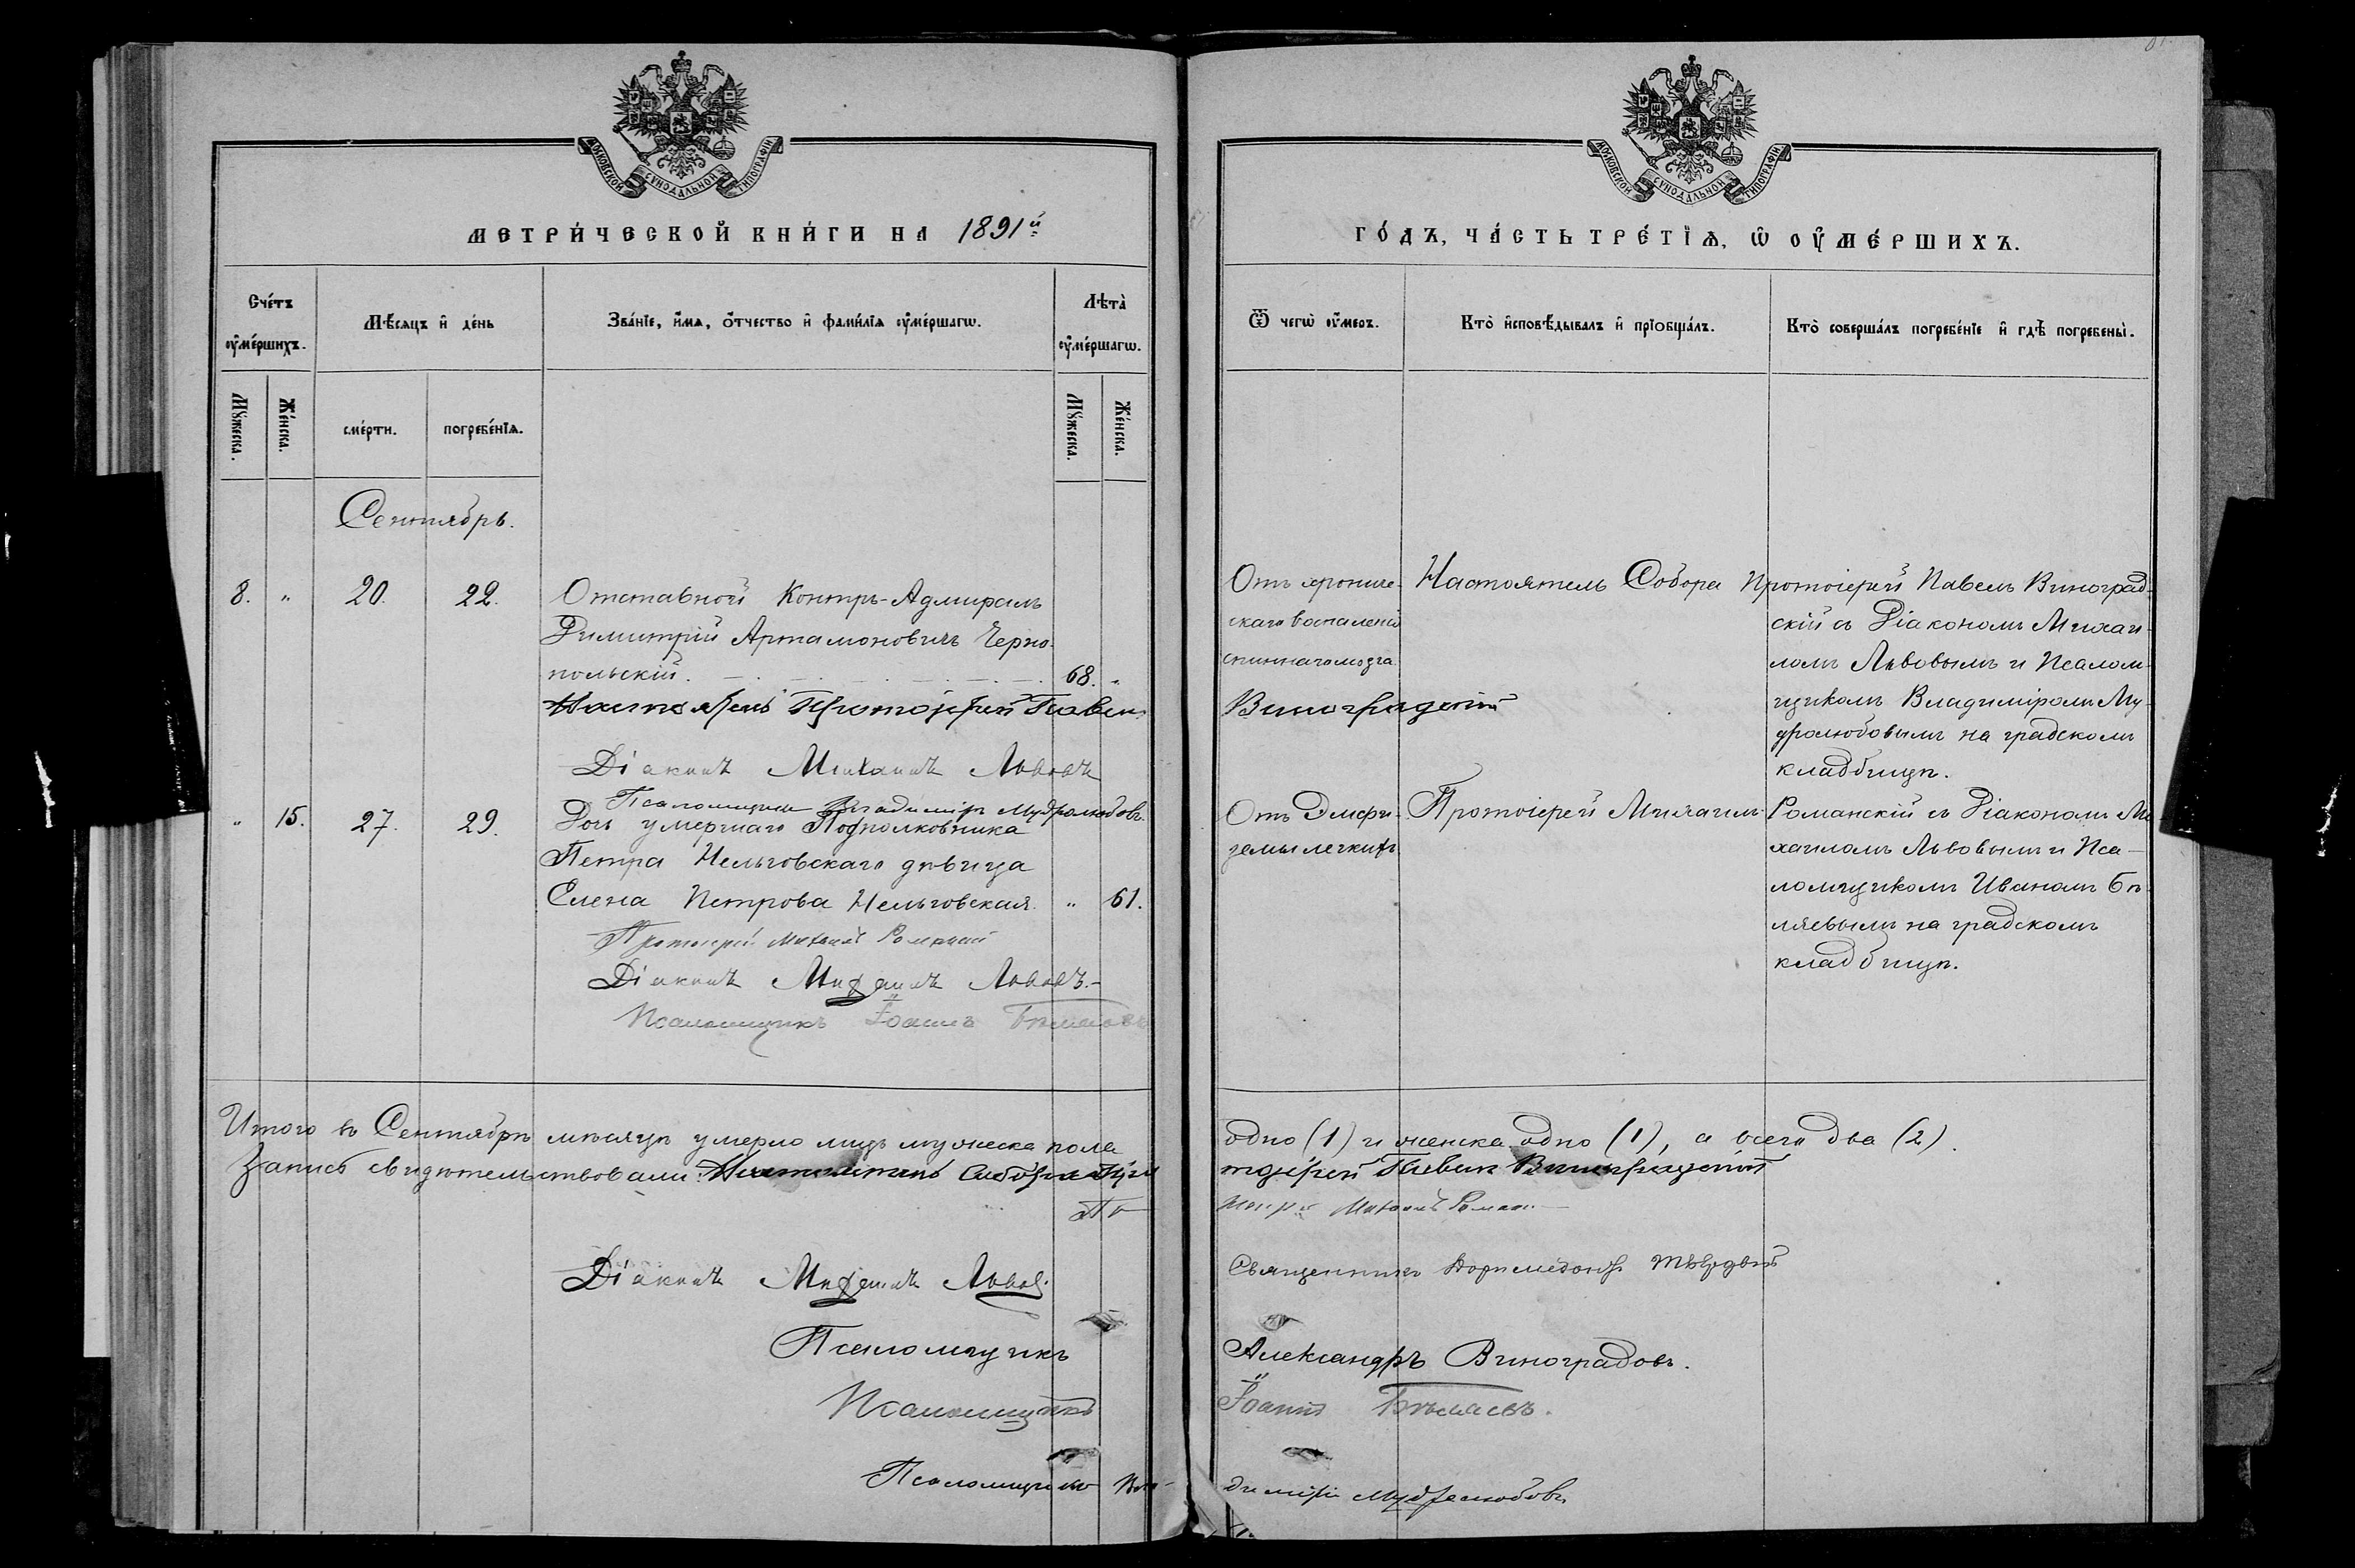 МОСКОВСКОЙ СУНОДАЛЬНОЙ ТИПОГРАФІИ
МЕТРИ́ЧЕСКОЙ КНИ́ГИ НА 1891й
Сче́тъ ᲂу҆ме́ршихъ.
Мꙋ́жеска.
Же́нска.
Мѣ́сяцъ и҆ де́нь
сме́рти.
погребе́нїѧ.
Зва́нїе, и҆́мѧ, ѻ҆́тчество и҆ фами́лїѧ ᲂу҆ме́ршагѡ.
Лѣта̀ ᲂу҆ме́ршагѡ.
Мꙋ́жеска.
Же́нска.
Сентябрь.
8. " 20. 22. Отставной Контръ-Адмиралъ
Димитрій Артамоновичъ Черно-
польскій. 68. "
Настоятель Протоіерей Павелъ
Діаконъ Михаилъ Львовъ
Псаломщикъ Владиміръ Мудролюбовъ.
" 15. 27. 29. Дочь умершаго Подполковника
Петра Нельговскаго дѣвица
Елена Петрова Нельговская. " 61.
Протоіерей Михаилъ Романскій
Діаконъ Михаилъ Львовъ.
Псаломщикъ Іоаннъ Бѣляевъ
Итого въ Сентябрѣ мѣсяцѣ умерло лицъ мужеска пола
Запись свидѣтельствовали: Настоятель Собора Про
Діаконъ Михаилъ Львовъ.
Псаломщикъ
Псаломщикъ
Псаломщикъ Вла-
МОСКОВСКОЙ СУНОДАЛЬНОЙ ТИПОГРАФІИ
ГО́ДЪ, ЧА́СТЬ ТРЕ́ТЇѦ, Ѡ҆ ОУ҆МЕ́РШИХЪ.
Ѿ чегѡ̀ ᲂу҆́меръ.
Кто̀ и҆сповѣ́дывалъ и҆ прїѡбща́лъ.
Кто̀ соверша́лъ погребе́нїе и҆ гдѣ̀ погребены̀.
Отъ хрониче-
скаго воспаленія
спиннаго мозга.
Виноградскій
Настоятель Собора Протоіерей Павелъ Виноград-
скій съ Діакономъ Михаи-
ломъ Львовымъ и Псалом-
щикомъ Владиміромъ Му-
дролюбовымъ на градскомъ
кладбищѣ.
Отъ Эмфи-
земы легкихъ
Протоіерей Михаилъ Романскій съ Діакономъ Ми
хаиломъ Львовымъ и Пса-
ломщикомъ Иваномъ Бѣ-
ляевымъ на градскомъ
кладбищѣ.
одно (1) и женска одно (1), а всего два (2).
тоіерей Павелъ Виноградскій
Михаилъ Роман
Священникъ Доримедонтъ
Александръ Виноградовъ.
Іоаннъ Бѣляевъ.
диміръ Мудролюбовъ